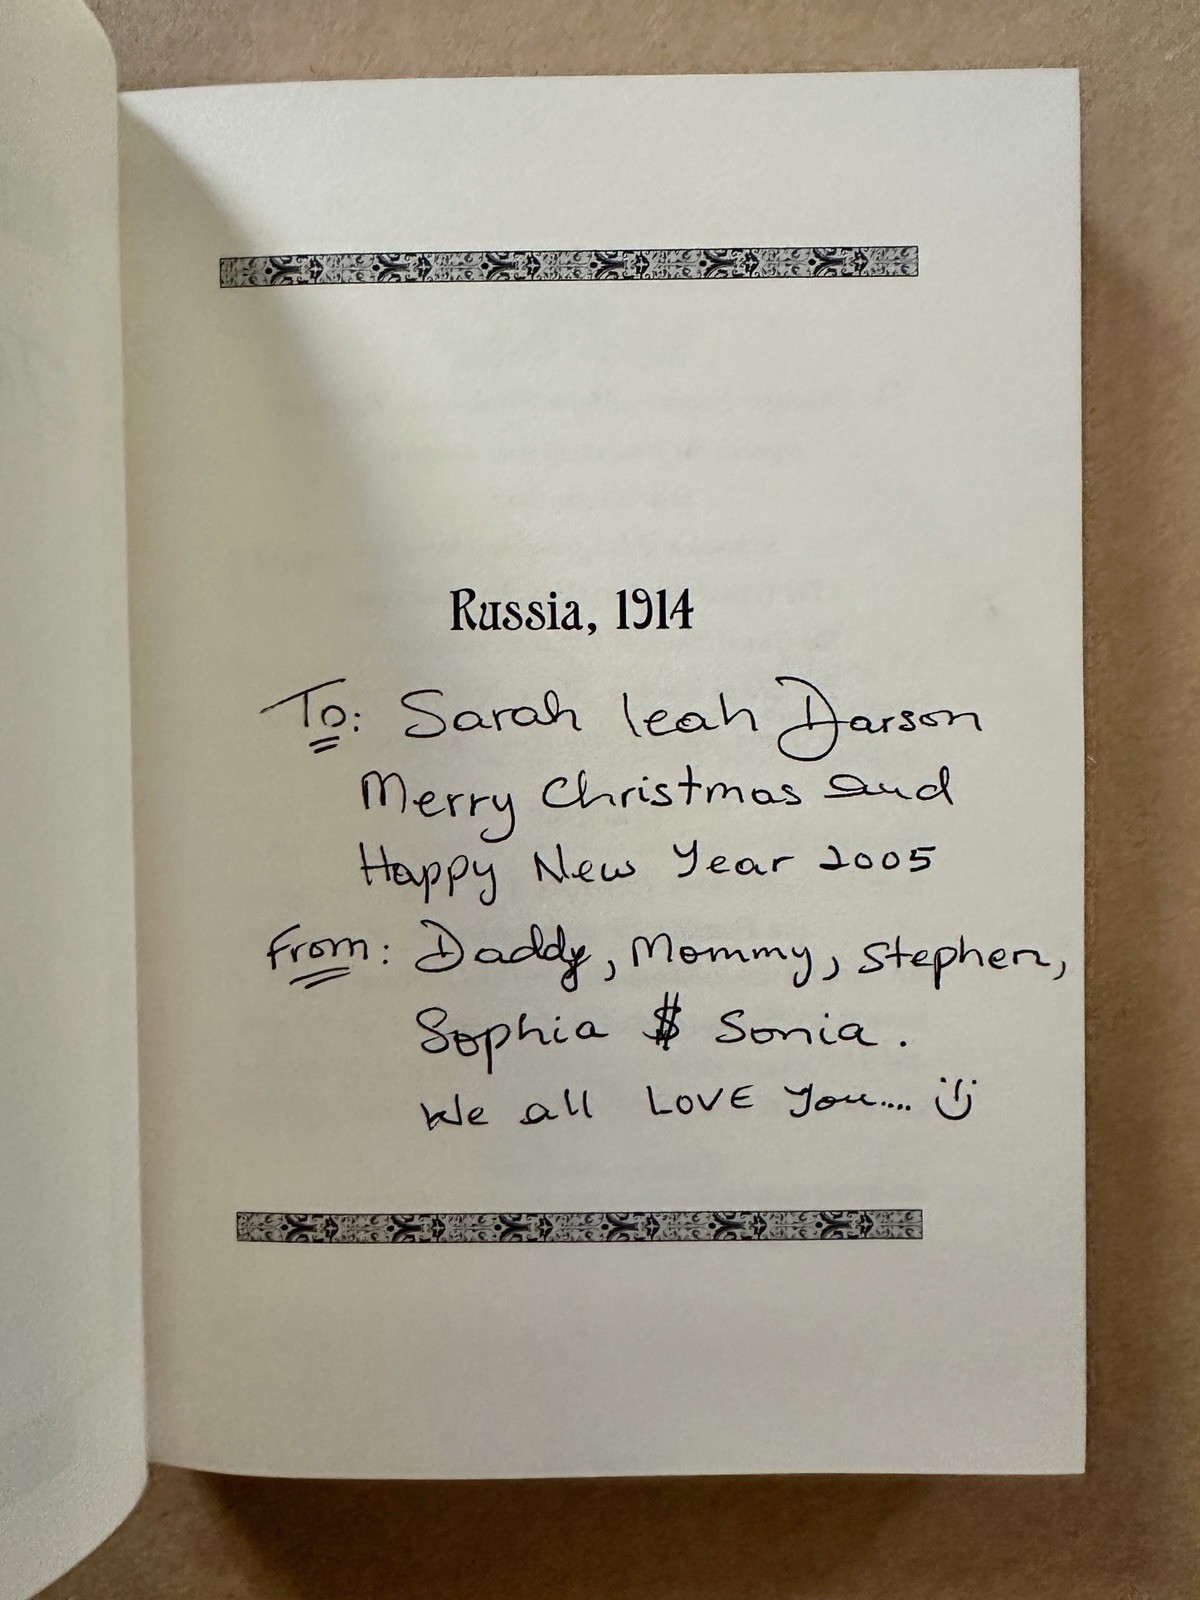 Russia, 1914
To: Sarah leah Darson
Merry Christmas and
Happy New Year 2005
From: Daddy, Mommy, Stephen,
Sophia $ Sonia.
We all LOVE You....